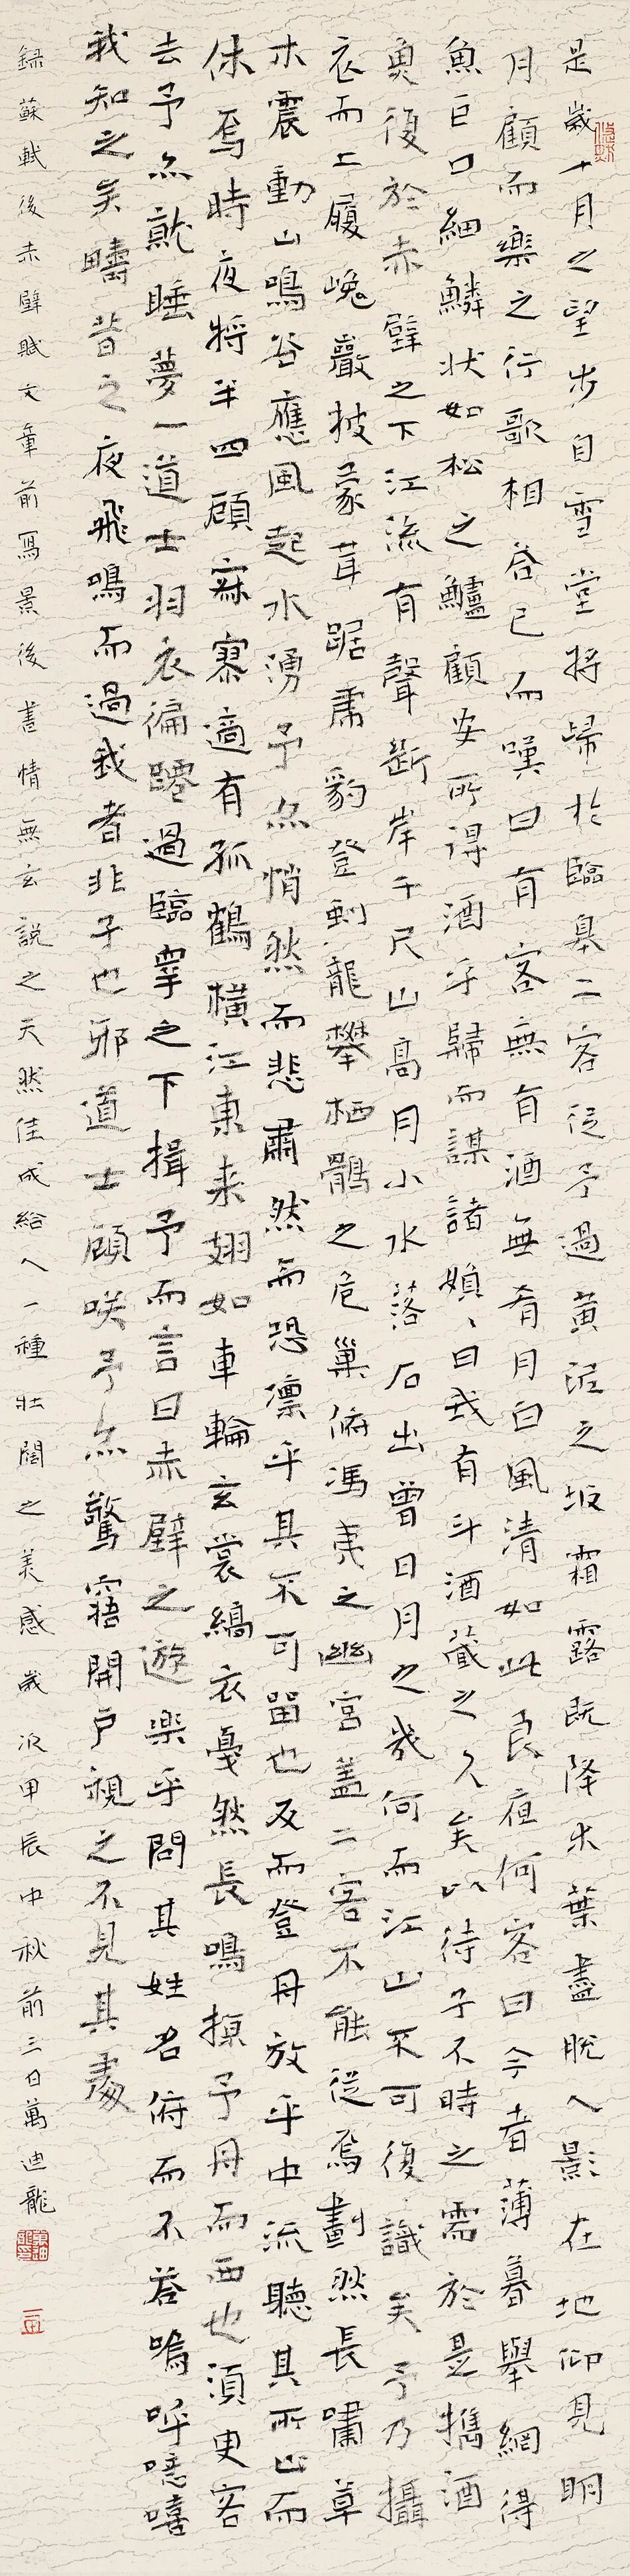 是歲十月之望步自雪堂將歸於臨皋二客從予過黃泥之坂霜露既降木葉盡脫人影在地仰見明
月顧而樂之行歌相答已而嘆曰有客無有酒無肴月白風清如此良夜何客曰今者薄暮舉網得
魚巨口細鱗狀如松之鱸顧安所得酒乎歸而謀諸婦、曰我有斗酒藏之久矣以待子不時之需於是攜酒
與復於赤壁之下江流有聲斷岸千尺山高月小水落石出曾日月之幾何而江山不可復識矣予乃攝
衣而上履巉巖披蒙茸踞虎豹登虯龍攀栖鶻之危巢俯馮夷之幽宮蓋二客不能從焉劃然長嘯草
木震動山鳴谷應風起水湧予亦悄然而悲肅然而恐凜乎其不可留也反而登舟放乎中流聽其所止而
休焉時夜將半四顧寂寥適有孤鶴橫江東來翅如車輪玄裳縞衣戛然長鳴掠予舟而西也須臾客
去予亦就睡夢一道士羽衣徧躚過臨皋之下揖予而言曰赤壁之遊樂乎問其姓名俯而不答嗚呼噫嘻
我知之矣疇昔之夜飛鳴而過我者非子也邪道士顧咲予亦驚寤開戶視之不見其處
錄蘇軾後赤壁賦文章前寫景後書情無玄說之天然佳成給人一種壯闊之美感歲次甲辰中秋前三日萬迪龍